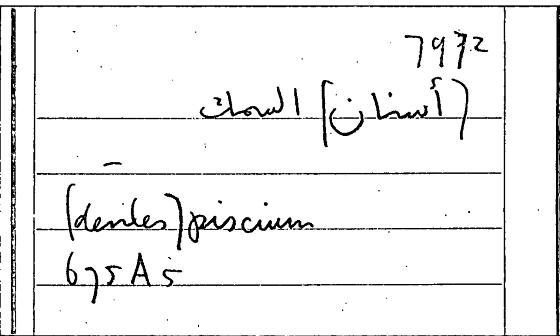 7972
(أسنان) السمك
–
(dentes) piscium
675A5